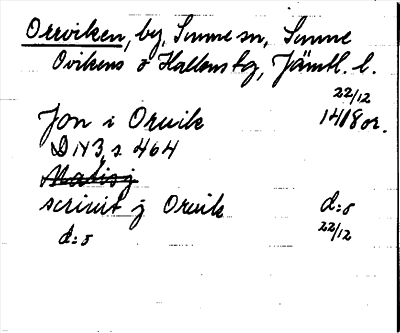 Orrviken, by, Sunne sn, Sunne
Ovikens o Hallens tg, Jämtl. l.
22/12
Jon i Orwik 1418 or.
DN 3, s 464
scriuit j Orwik d:o
d:o 22/12